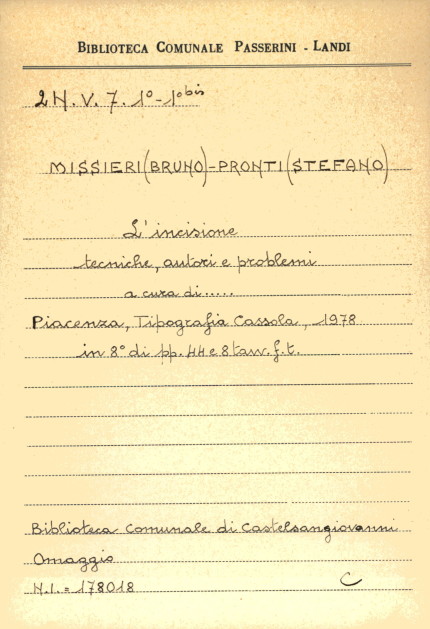 BIBLIOTECA COMUNALE PASSERINI - LANDI
2 H. V. 7. 1º - 1º bis
MISSIERI (BRUNO) - PRONTI (STEFANO)
L'incisione
tecniche, autori e problemi
a cura di.....
Piacenza, Tipografia Cassola, 1978
in 8° di pp. 44 e 8 tavv. f. t.
Biblioteca Comunale di Castelsangiovanni
Omaggio
N.I. = 178018 C